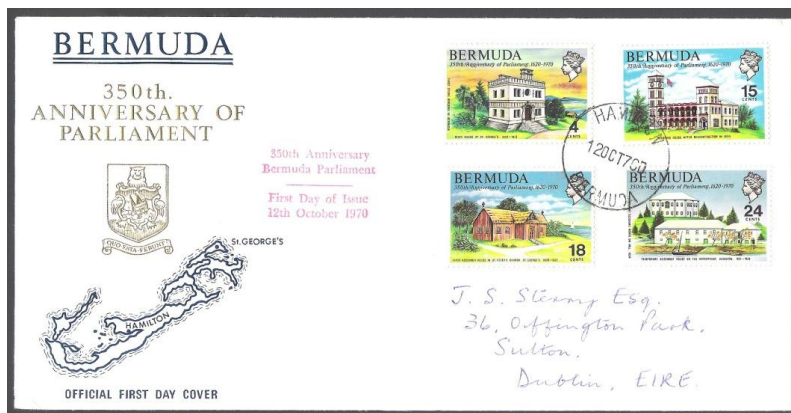 BERMUDA
350th.
ANNIVERSARY OF
PARLIAMENT
QUO FATA FERUNT
350th Anniversary
Bermuda Parliament
First Day of Issue
12th October 1970
St. GEORGE'S
HAMILTON
OFFICIAL FIRST DAY COVER
BERMUDA
350th Anniversary of Parliament, 1620-1970
4
CENTS
BERMUDA
350th Anniversary of Parliament, 1620-1970
15
CENTS
12 OCT 70
BERMUDA
BERMUDA
350th Anniversary of Parliament, 1620-1970
18
CENTS
BERMUDA
350th Anniversary of Parliament, 1620-1970
24
CENTS
J. S. Esq.
36, Offington Park,
Sutton.
Dublin, EIRE.